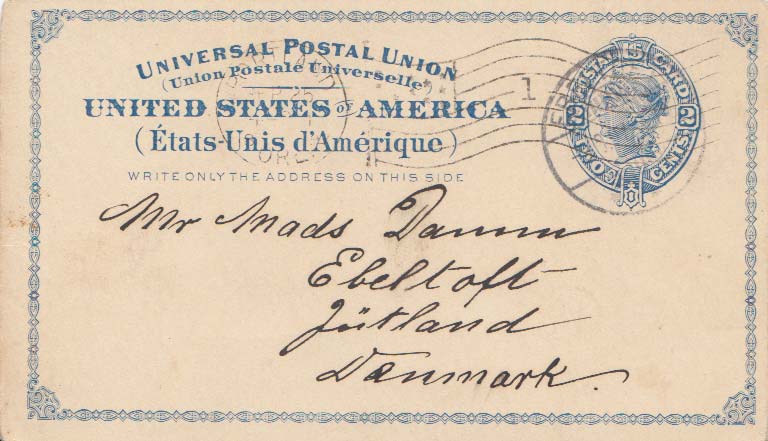 UNIVERSAL POSTAL UNION
(Union Postale Universelle)
UNITED STATES OF AMERICA
(États-Unis d'Amérique)
WRITE ONLY THE ADDRESS ON THIS SIDE
PORTLAND
ORE.
1
POSTAL CARD
2 2
TWO CENTS
Mr Mads Damm
Ebeltoft
Jütland
Danmark.